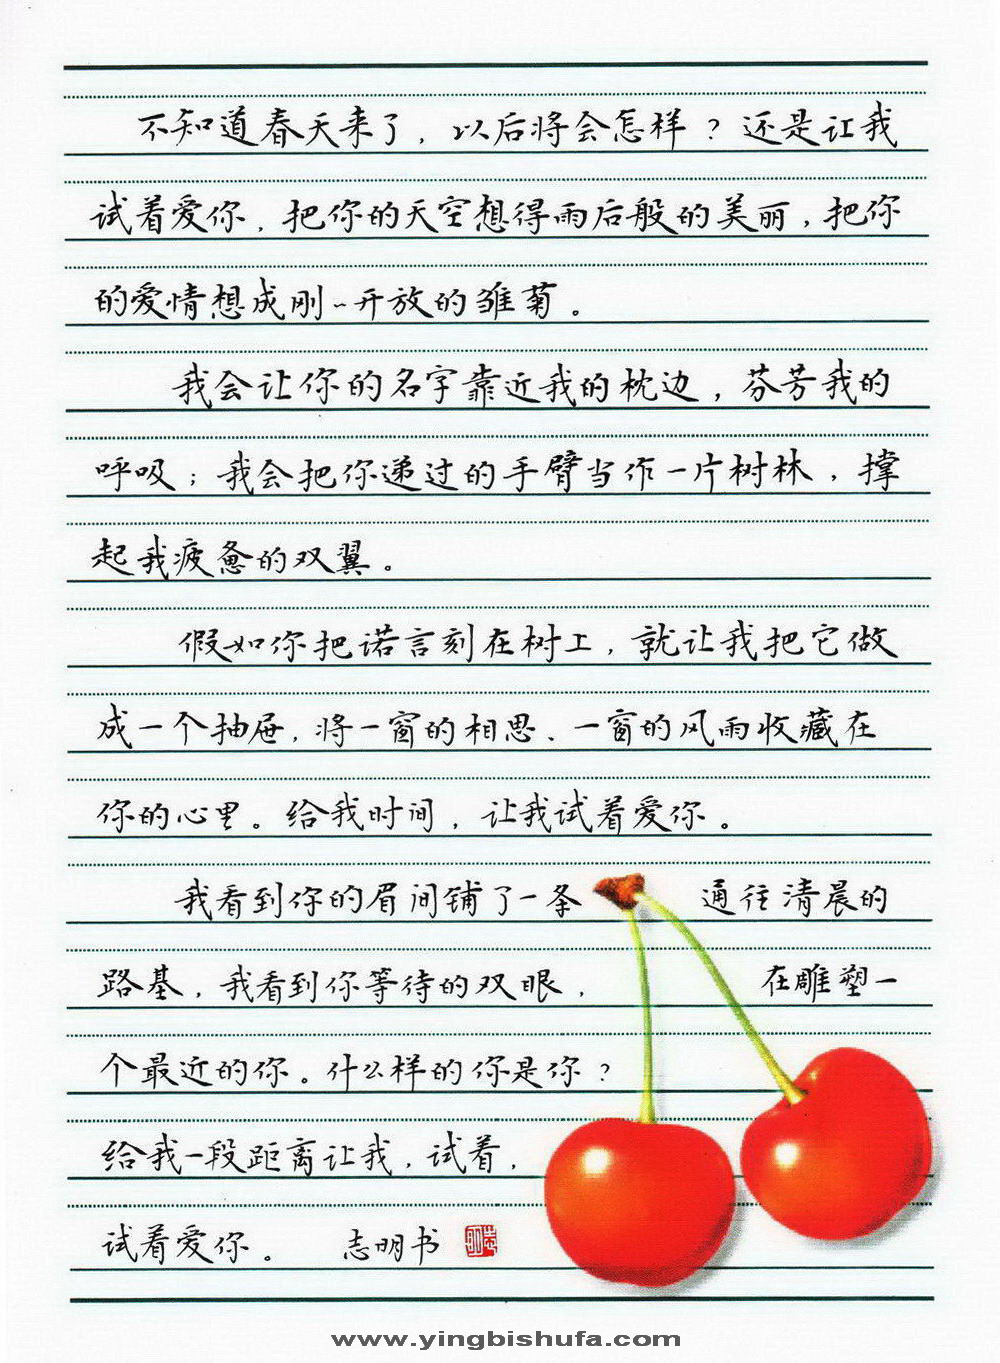 不知道春天来了，以后将会怎样？还是让我
试着爱你，把你的天空想得雨后般的美丽，把你
的爱情想成刚一开放的雏菊。
我会让你的名字靠近我的枕边，芬芳我的
呼吸；我会把你递过的手臂当作一片树林，撑
起我疲惫的双翼。
假如你把诺言刻在树上，就让我把它做
成一个抽屉，将一窗的相思、一窗的风雨收藏在
你的心里。给我时间，让我试着爱你。
我看到你的眉间铺了一条通往清晨的
路基，我看到你等待的双眼，在雕塑一
个最近的你。什么样的你是你？
给我一段距离让我，试着，
试着爱你。 志明书 志明
www.yingbishufa.com